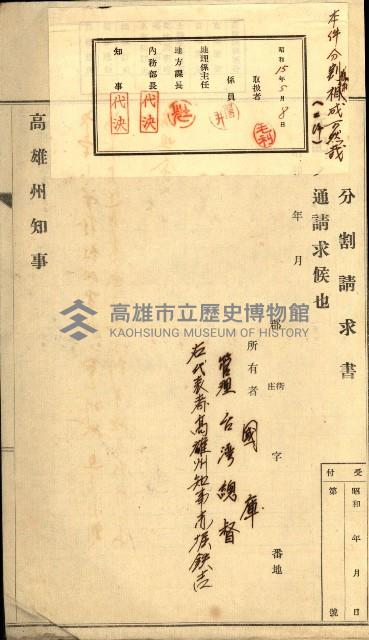 本件分割相成可然哉
(二件)
昭和15年5月8日
取扱者
毛利
係員
地理係主任
地方課長
内務部長
代決
知事
代決
分割請求書
通請求候也
年 月
郡 街庄 字 番地
所有者 國庫
管理 台湾總督
右代表者高雄州知事赤堀鉄吉
高雄州知事
受付
昭和 年 月 日
第 號
高雄市立歷史博物館
KAOHSIUNG MUSEUM OF HISTORY